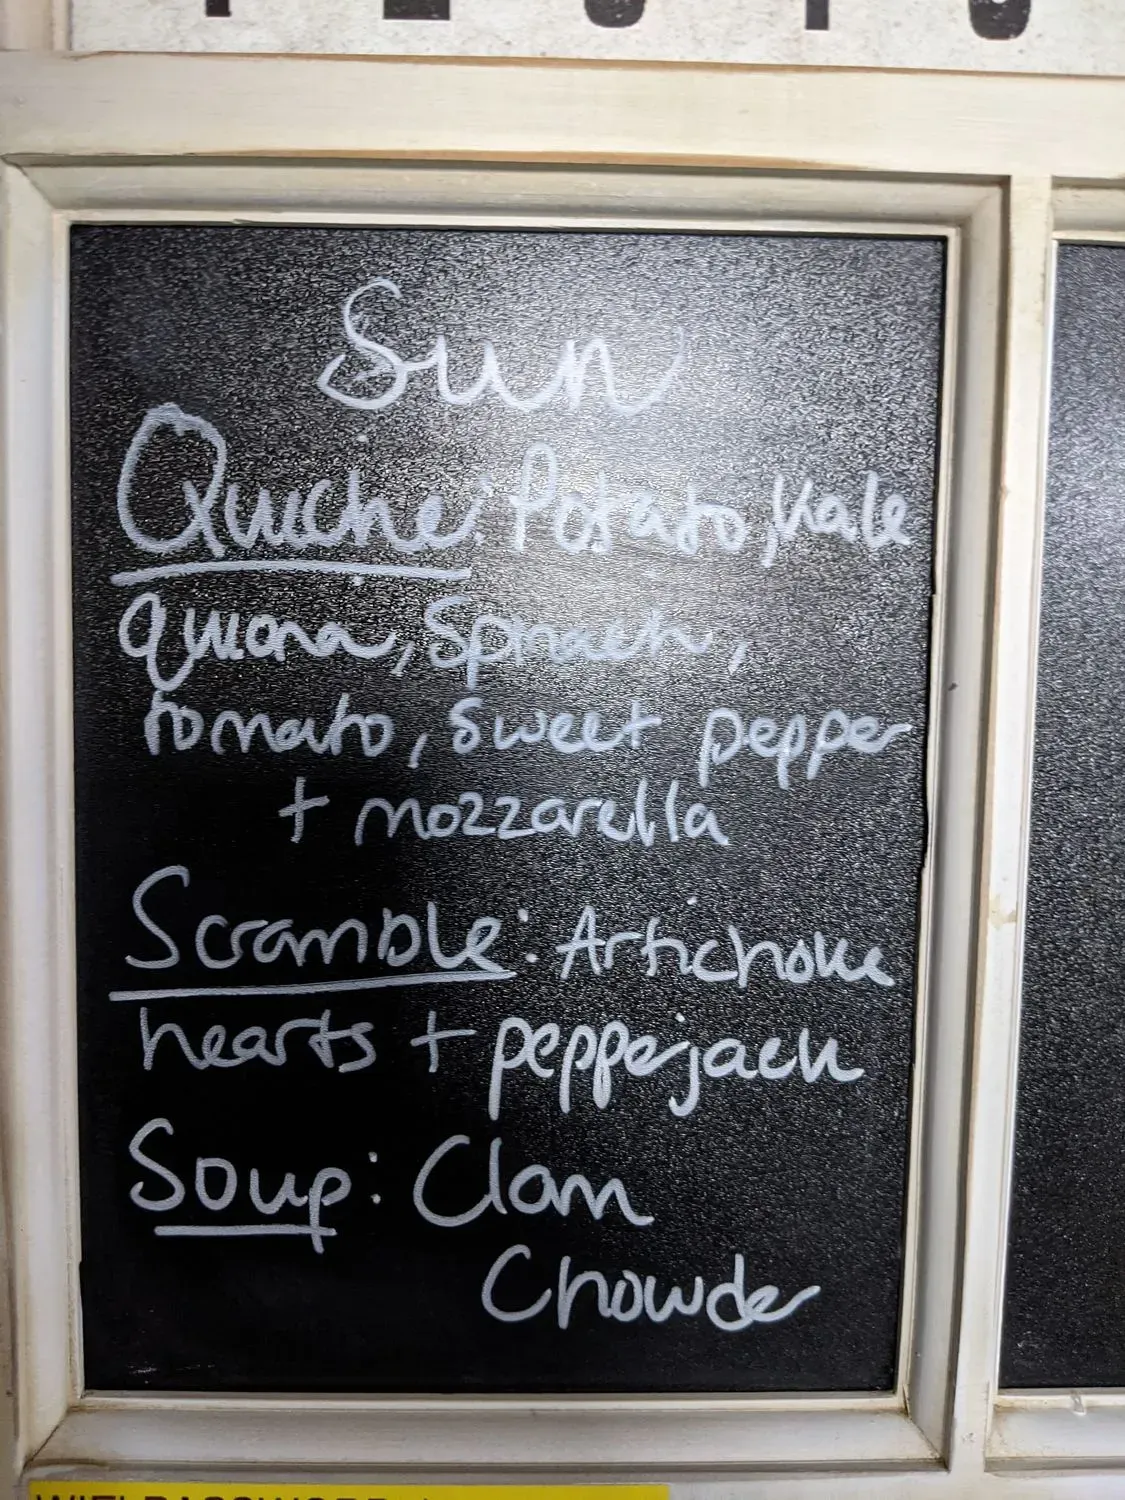 Sun
Quiche: Potato, Kale
quiona, Spinach,
tomato, sweet pepper
+ mozzarella
Scramble: Artichoke
hearts + pepperjack
Soup: Clam
Chowder
WIFI PASSWORD